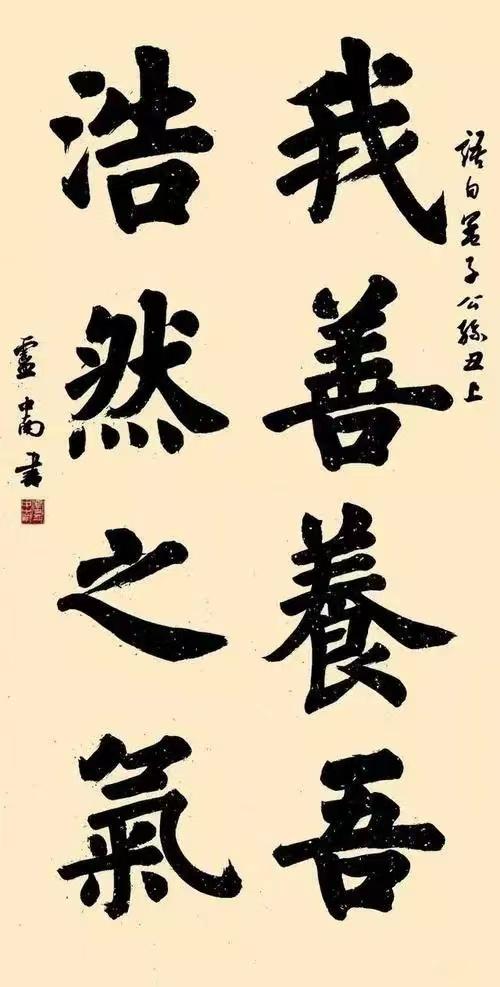 語自孟子公孫丑上
我善養吾
浩然之氣
盧中南書